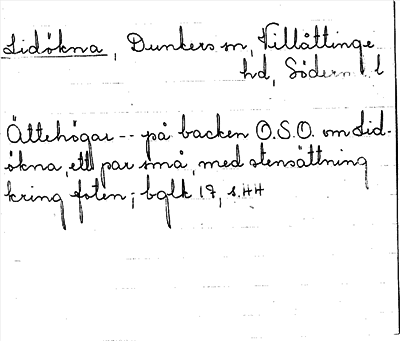 Lidökna, Dunkers sn, Villåttinge
hd, Söderm. l
Ättehögar -- på backen O.S.O. om Lid-
ökna, ett par små, med stensättning
kring foten; bglk 17, s. HH